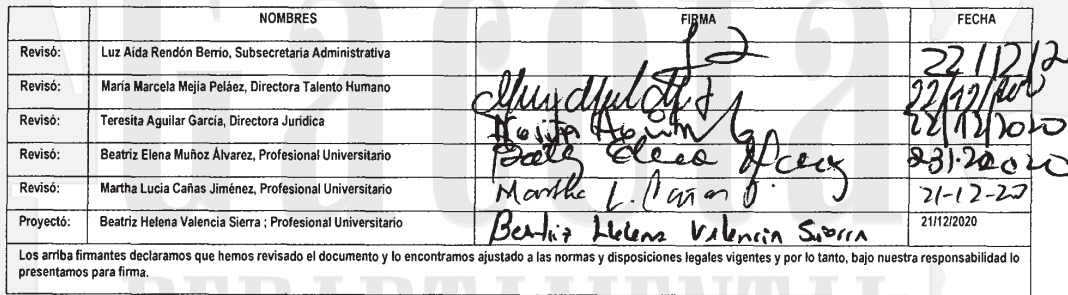 NOMBRES FIRMA FECHA
Revisó: Luz Aida Rendón Berrio, Subsecretaria Administrativa 22/12/2
Revisó: María Marcela Mejía Peláez, Directora Talento Humano 22/12/2020
Revisó: Teresita Aguilar García, Directora Jurídica 22/12/2020
Revisó: Beatriz Elena Muñoz Álvarez, Profesional Universitario Elena
Revisó: Martha Lucia Cañas Jiménez, Profesional Universitario Martha L. Cañas J. 21-12-20
Proyectó: Beatriz Helena Valencia Sierra ; Profesional Universitario Beatriz Helena Valencia Sierra 21/12/2020
Los arriba firmantes declaramos que hemos revisado el documento y lo encontramos ajustado a las normas y disposiciones legales vigentes y por lo tanto, bajo nuestra responsabilidad lo
presentamos para firma.
DEPARTAMENTAL